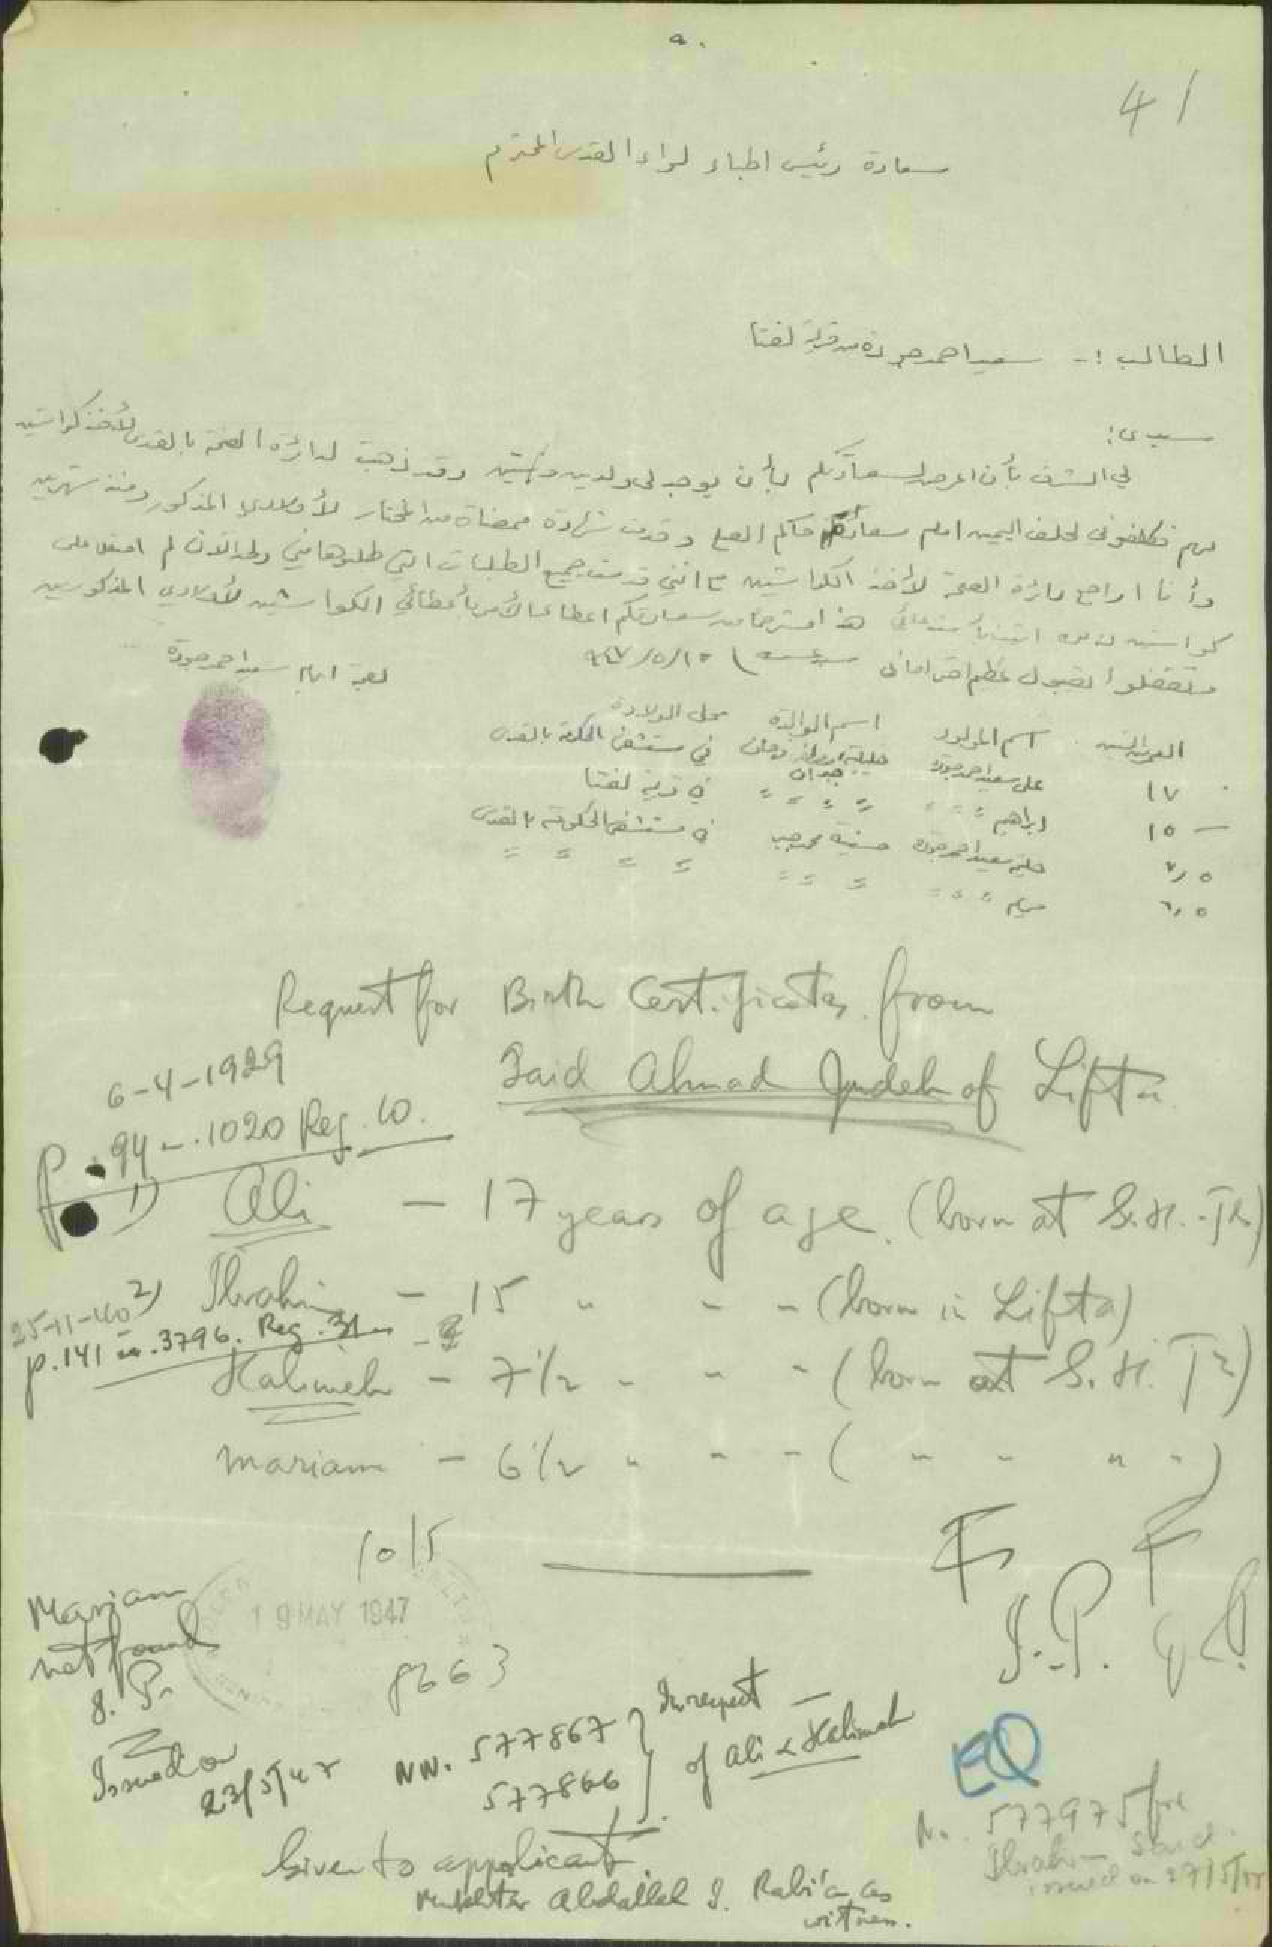 41
سعادة رئيس اطباء لواء القدس المحترم
الطالب :- سعيد احمد جودة من قرية لفتا
سيدي:
لي الشرف بأن اعرض لسعادتكم بأن يوجد لي ولدين وبنتين وقد ذهبت لدائرة الصحة بالقدس لأخذ كواشين
لهم فكلفوني لحلف اليمين امام سعادة حاكم الصلح وقدمت شهادة ممضاة من المختار لأولادي المذكور ومنذ شهرين
وأنا اراجع دائرة الصحة لأخذ الكواشين مع انني قدمت جميع الطلبات التي طلبوها مني ولحد الان لم احصل على
كواشين هذا استرحم من سعادتكم اعطاء الأمر بأعطائي الكواشين لأولادي المذكورين
وتفضلوا بقبول عظم احتراماتي سيدي ١٥/٥/٩٤٧
بصمة ابهام سعيد احمد جودة
العمر بالسنين اسم المولود اسم الوالدة محل الولادة
١٧ علي سعيد احمد جودة خليلة في مستشفى الحكومة بالقدس
١٥ ابراهيم " " " " " " " في قرية لفتا
٧,٥ حليمة سعيد احمد جودة حسنية محمد في مستشفى الحكومة بالقدس
٦,٥ مريم " " " " " " " " " "
Request for Birth Certificates from
Said Ahmad Judeh of Lifta
6-4-1929
p. 94 - .1020 Reg. 10.
1) Ali - 17 years of age (born at G.H. - Jm)
2) Ibrahim - 15 " " - (born in Lifta)
25-11-40
p. 141 no. 3796. Reg. 31
Halimeh - 7 1/2 " " " (born at G.H. Jm)
Mariam - 6 1/2 " " - ( " " " " )
10/5
19 MAY 1947
Mariam
not found
8663
Issued on
23/5/47
NN. 577867
577866
In respect
of Ali & Halimeh
EQ
No. 577975 for
Ibrahim Said
issued on 27/5/47
Given to applicant
Mukhtar Abdallah I. Rabi'a as
witness.